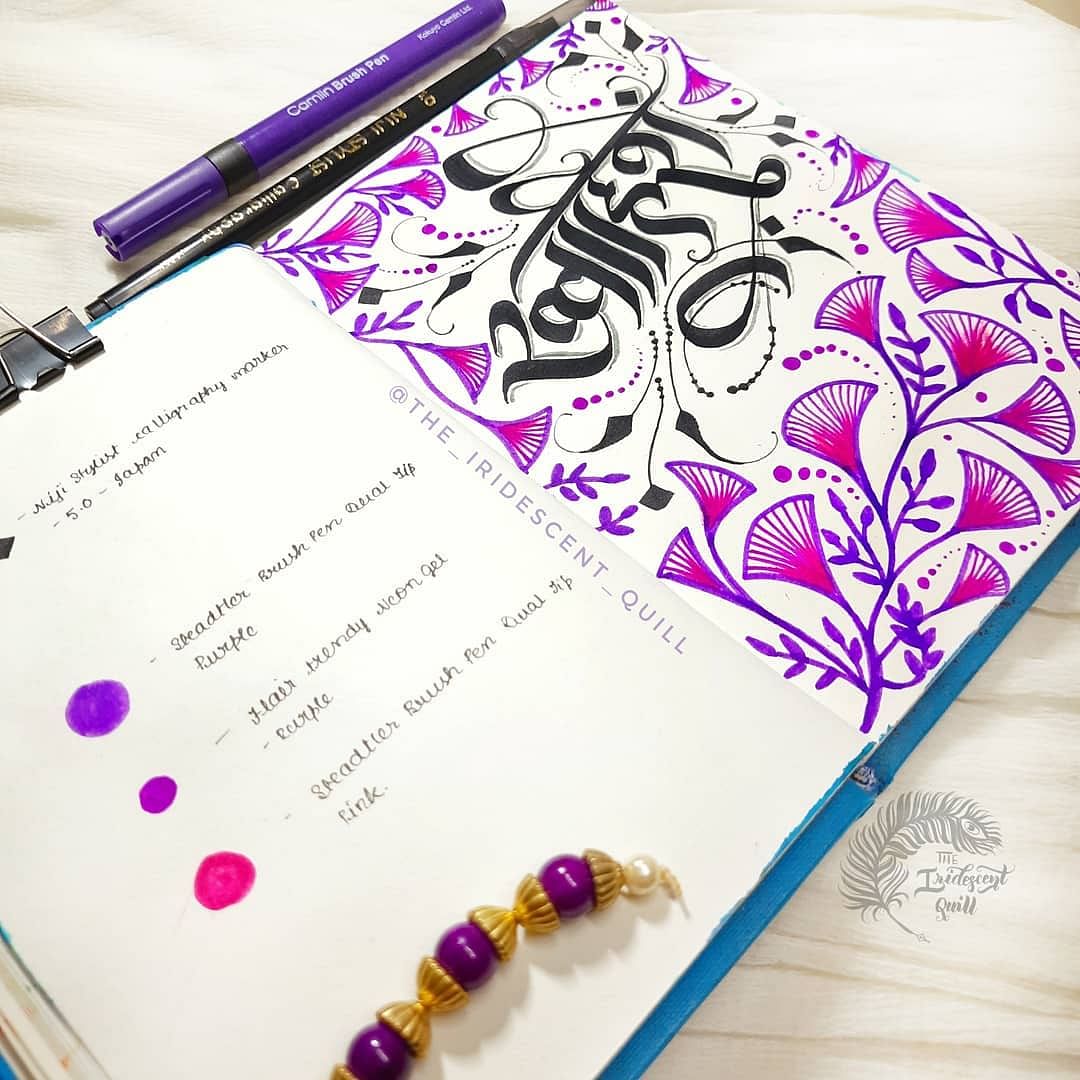 Camlin Brush Pen
Kokuyo Camlin Ltd.
NIJI STYLIST Calligraphy
@THE_IRIDESCENT_QUILL
- Niji Stylist calligraphy marker
- 5.0 - Japan
- Steadtler Brush Pen Dual Tip
Purple
- Flair trendy Neon gel
- Purple
- Steadtler Brush Pen Dual Tip
Pink.
THE
Iridescent
Quill